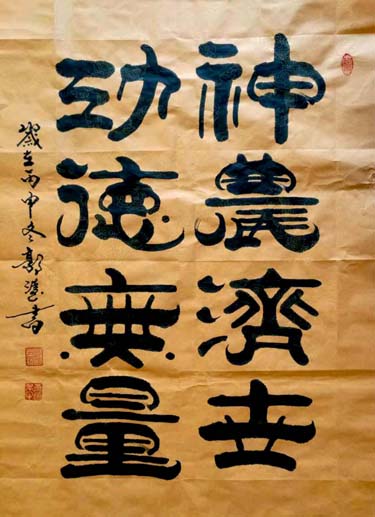 神農濟世
功德無量
歲在丙申冬郭進書